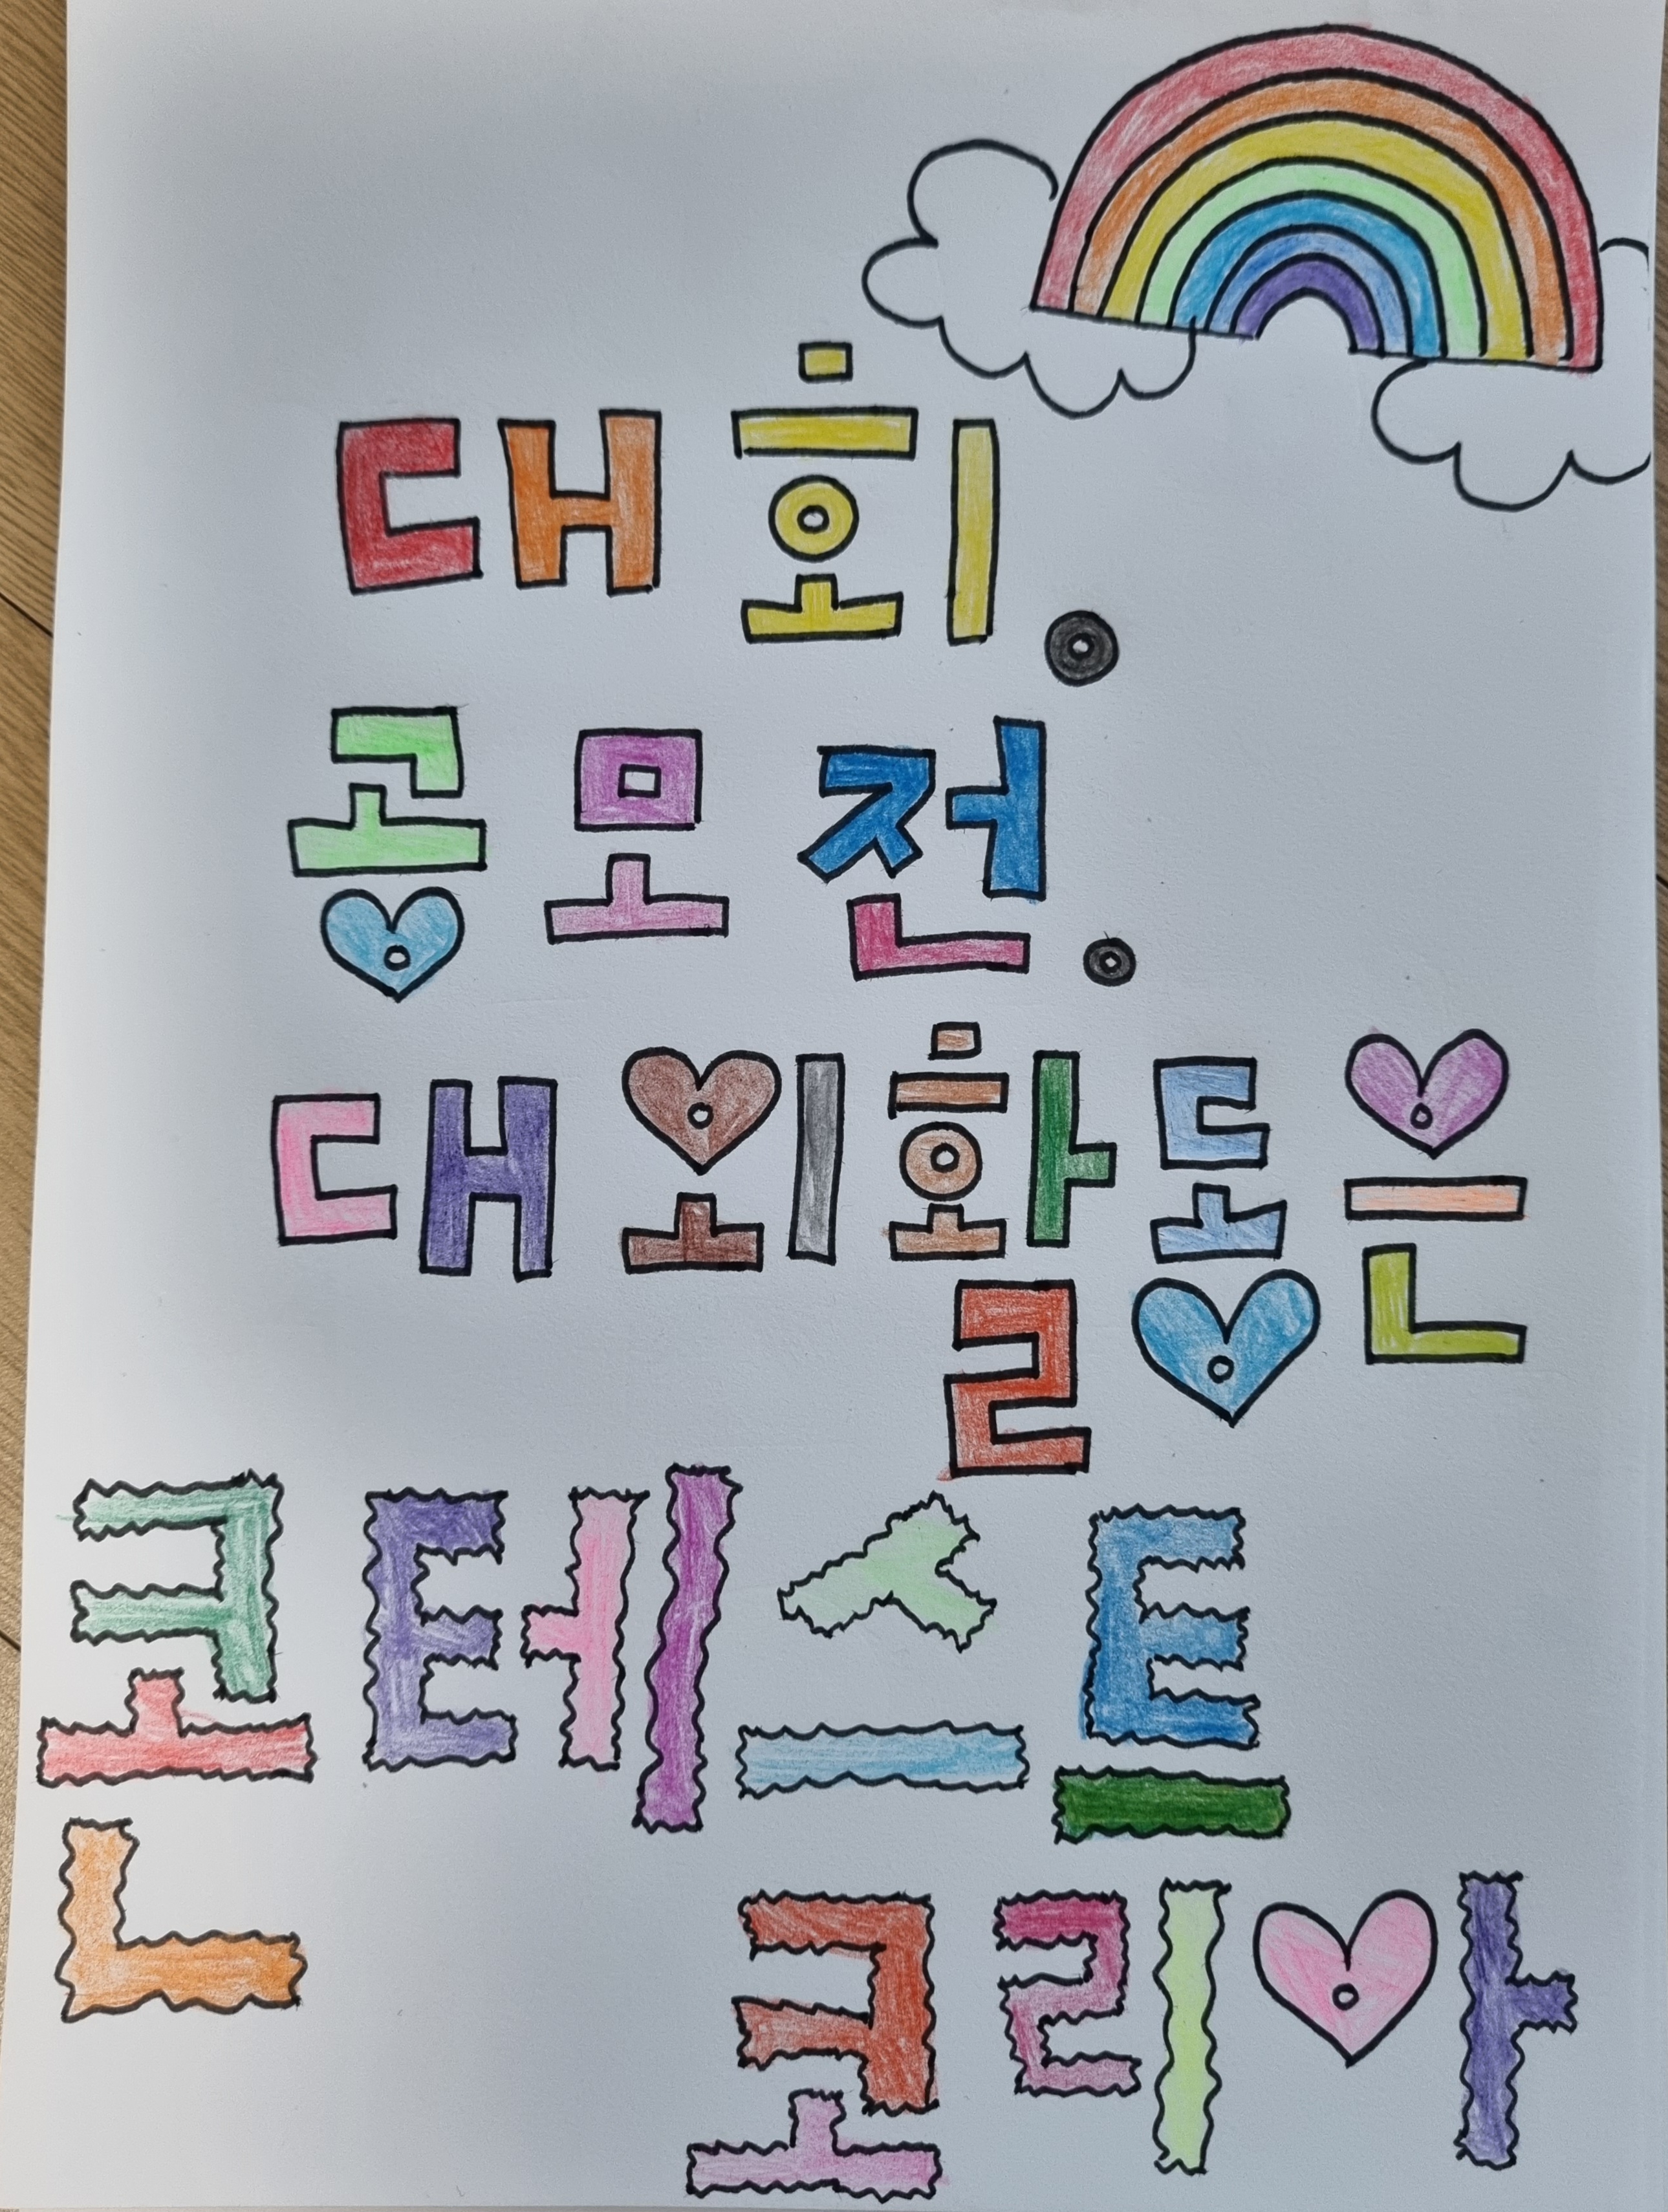 대회.
공모전.
대외활동은
콘테스트
코리아